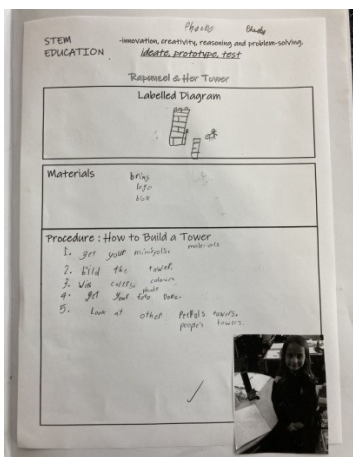 Phoebe
STEM
EDUCATION
-innovation, creativity, reasoning and problem-solving.
ideate, prototype, test
Rapunzel & Her Tower
Labelled Diagram
Materials
lego
box
Procedure : How to Build a Tower
1. get your
materials
2. bild the tower.
3. Wis
colours
4. get your foto
photo
5. Look at other
towers.
people's towers.